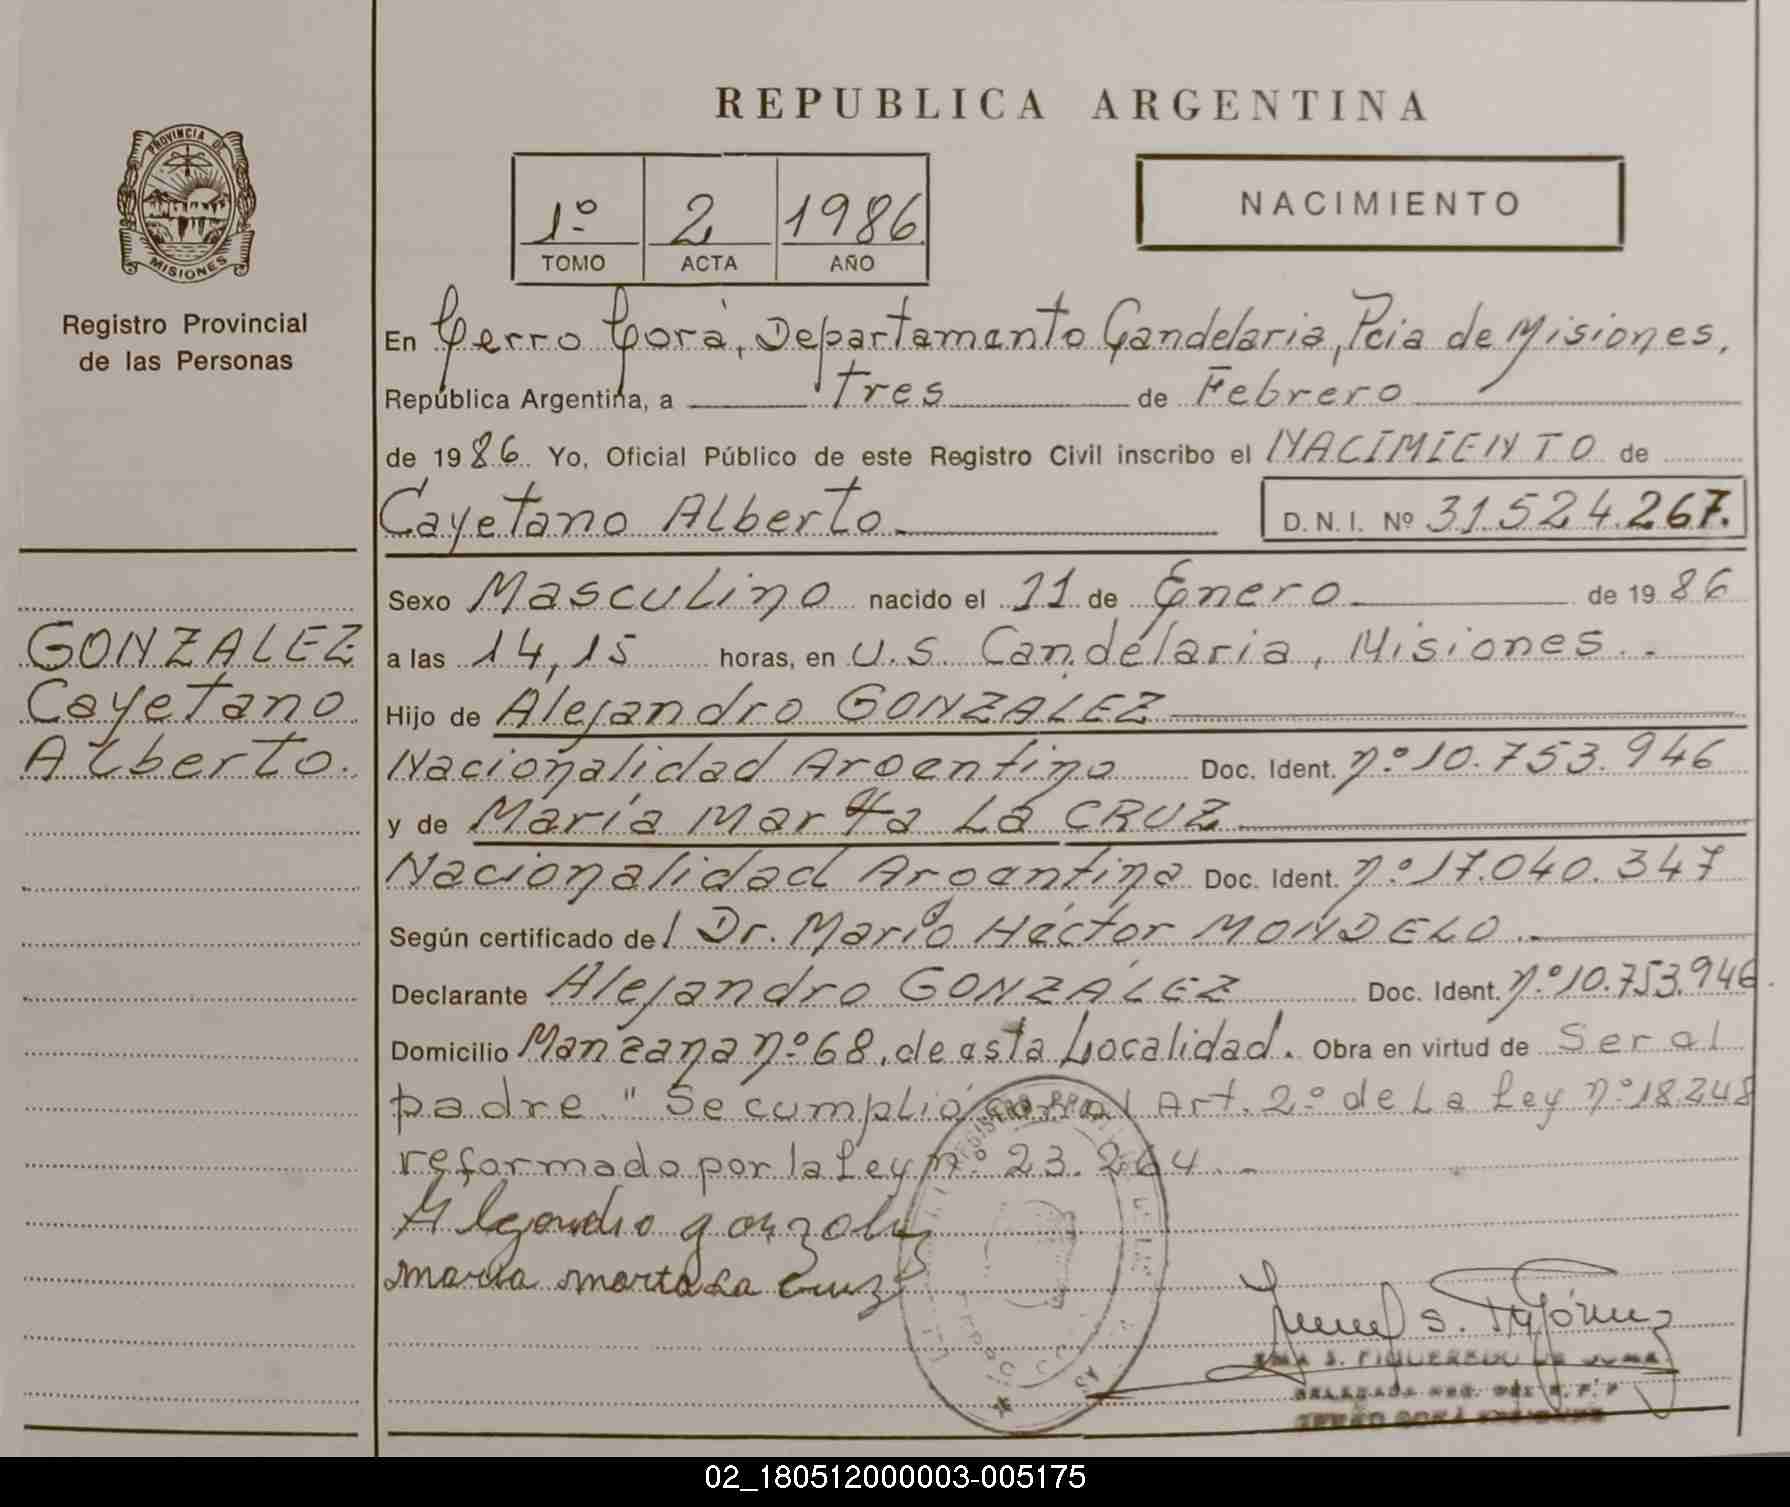 REPUBLICA ARGENTINA
PROVINCIA DE
MISIONES
Registro Provincial
de las Personas
1º 2 1986
TOMO ACTA AÑO
NACIMIENTO
En Cerro Corá, Departamento Candelaria, Pcia de Misiones,
República Argentina, a tres de Febrero
de 1986 Yo, Oficial Público de este Registro Civil inscribo el NACIMIENTO de
Cayetano Alberto D.N.I. Nº 31.524.267.
GONZALEZ
Cayetano
Alberto.
Sexo Masculino nacido el 11 de Enero de 1986
a las 14,15 horas, en U.S. Candelaria, Misiones..
Hijo de Alejandro GONZALEZ
Nacionalidad Argentina Doc. Ident. nº 10.753.946
y de María Marta La CRUZ
Nacionalidad Argentina Doc. Ident. nº 17.040.347
Según certificado del Dr. Mario Héctor MONDELO.
Declarante Alejandro GONZÁLEZ Doc. Ident. nº 10.753.946.
Domicilio Manzana nº 68, de esta Localidad. Obra en virtud de Ser al
padre. " Se cumplió con el Art. 2º de La Ley nº 18.248
reformado por la Ley nº 23.264.-
Alejandro gonzalez
maria marta La Cruz
02_180512000003-005175